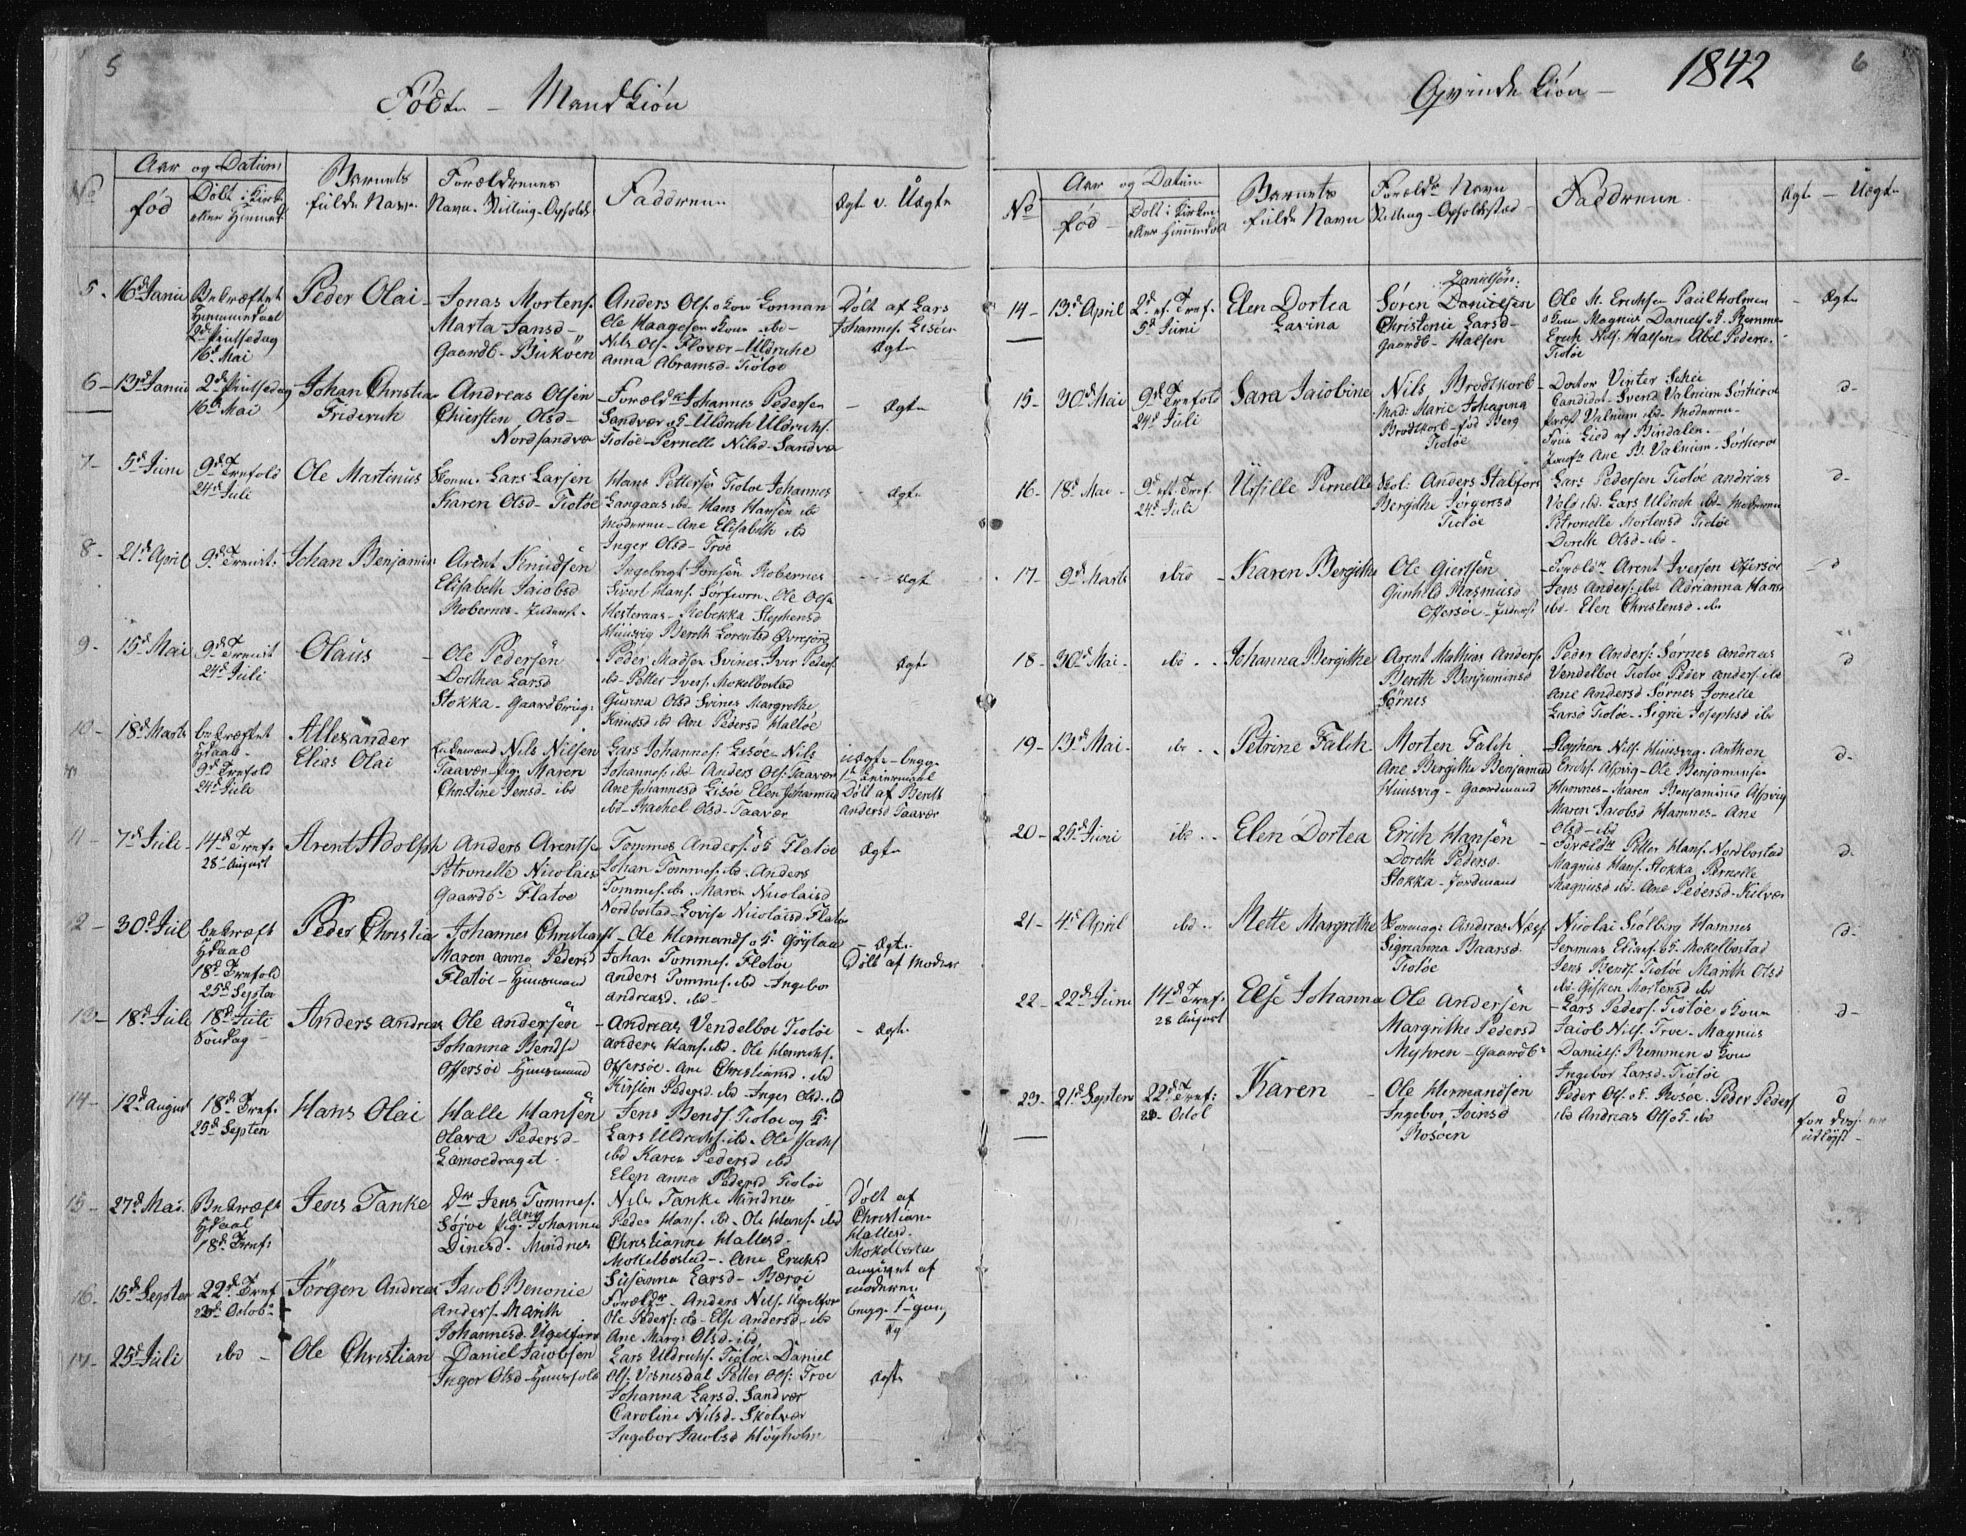 5
Fødte - Mandkiøn
No
Aar og Datum
fød
Døbt i Kirke
eller Hiemmed
Barnets
fulde Navn
Forældrenes
Navn. Stilling. Opholds
Faddrene
Ægte v. Uægte
5. 16d Janu
Bekræftet
Hiemmedaab
2d Pintsedag
16d Mai
Peder Olai
Jonas Mortens.
Marta Jansd
Gaardb. Bukøen
Anders Ols. o kone Gonnan
Ole Haagesen Kone ibd
Nils Ols. Flovær - Uldriche
Anna Abramsd. Tiøtøe
Døbt af Lars
Johannes. Lisøen
Ægte
6 - 13d Janu
2d Pintsedag
16d Mai
Johan Christian
Friderich
Andreas Olsen
Chiersten Olsd
Nordsandvær
Foræld. Johannes Pedersen
Sandvær o G. Uldrich Uldrichs.
Tiotøe - Pernelle Nilsd - Sandvær
Ægte
7 - 5d Juni
9d Trefold
24d Juli
Ole Martinus
Lars Larsen
Karen Olsd - Tiotøe
Hans Pettersø Tiotøe Johannes
Langaas ibd - Hans Hansen ibd
Moderen - Ane Elisabeth ibd
Inger Olsd - Troe
Ægte
8 - 21d April
9d Trenit:
Johan Benjamin
Arent Knudsen
Elisabeth Jacobsd
Robernes
Ingebrigt Jonsen Robernes
Sivert Hans. Sørfiorn. Ole Ols.
Hesteraas - Rebekka Stephensd
Huusvig Bereth Lorentsd Øvrefiord
Ægt
9. 15d Mai
9d Trenit
24d Juli
Olaus
Ole Pedersen
Dorthea Larsd
Stokka - Gaardbrug:
Peder Madsen Svines. Iver Peders
ibd - Petter Ivers. Mokelbostad
Gurina Olsd Svines Margrethe
Knudsd ibd Ane Pedersd Haltøe
Ægte
10 - 18d Marts
bekræftet
Hdaab
9d Trefold
24d Juli
Allexander
Elias Olai
Nils Nilsen
Taavær - Pig. Maren
Christine Jensd - ibd
Lars Johannes. Lisøe - Nils
Johannes. ibd - Anders Ols. Taavær
Ane Johannesd Lisøe Elen Johannesd
ibd - Rachel Olsd - Taavær
uægte - begge
1te Leiermaal
Døbt af Bereth
Andersd Taavær
11 - 7d Juli
14d Tref.
28 August
Arent Adolph
Anders Arentse
Petronelle Nicolais
Gaardb. Flatøe
Tommes Anders. o G Flatøe
Johan Tommes. ibd. Anders
Tommes. ibd. Maren Nicolaisd
Nordbostad - Lovise Nicolaisd. Flatøe
Ægte
12 - 30d Jul
bekræft
Hdaab
18d Trefold
25d Septer
Peder Christia
Johannes Christians
Maren Anna Pedersd
Flatøe - Huusmand
Ole Hermands. o G. Grytaa
Johan Tommes. Flatøe
Anders Tommes. ibd - Ingebor
Andreasd. ibd
Ægte
Døbt af Moderen
13 - 18d Juli
18d Juli
Søndag
Anders Andreas
Ole Andersen
Johanna Bendsd
Offersøe Huusmand
Andreas Vendelboe Tiotøe
Anders Hans. ibd - Ole Henrichs.
Offersøe - Ane Christiansd. ibd
Kirsten Pedersd ibd - Inger Olsd. ibd
Ægte
14 - 12d August
18d Tref.
25d Septem
Hans Olai
Halle Hansen
Olava Pedersd
Lamoedraget
Jens Bends. Tiotøe og G
Lars Uldrichs. ibd - Ole Isachs
ibd Karen Pedersd ibd
Elen Anna Pedersd Tiotøe
15 - 27d Mai
Bekræft
Hdaab
18d Tref:
Jens Tanke
Jens Tommes.
Sørve Pig. Ane Johanna
Dinesd. Mindnes
Nils Tanke Mindnes
Peder Hans. ibd - Ole Hans. ibd
Christianne Hallesd.
Mokelbostad - Ane Ericksd
Susanna Larsd - Bærøi
Døbt af
Christian
Hallesd.
Mokelbosta
angivet af
moderen
begge 1te gang
Æg
16 - 15d Septer
22d Tref
23d Octob
Jørgen Andreas
Jacob Benonie
Anders. Marith
Johannesd. Ugelfior
Forældr - Anders Nils. Ugelfior
Ole Peders: ibd - Else Andersd - ibd
Ane Marg: Olsd. ibd
17 - 25d Juli
ibd
Ole Christian
Daniel Jacobsen
Inger Olsd Huusfolk
Lars Uldrichs. Tiotøe - Daniel
Ols. Visnesdal Petter Ols: Troe
Johanna Larsd. Sandvær
Caroline Nilsd. Skolvær
Ingebor Jacobsd Høyholm
Ægte
1842
6
Qvinde kiøn
No
Aar og Datum
fød
Døbt i Kirken
eller Hiemmedøbt
Barnets
fulde Navn
Foræld. Navn
Stilling - Opholdsted
Faddrene
Ægte - Uægte
14 - 13d April
2d ef. Tref.
5d Juni
Elen Dortea
Lavina
Danielsen:
Søren Danielsen
Christenie Larsd
Gaardb - Halsen
Ole M. Erichsen Paulholmen
o kone Magnus Daniels o G. Remmen
Erich Nils. Halsen Abel Peders.
Tiotøe
Ægte
15 - 30d Mai
9d Trefold
24d Juli
Sara Jacobine
Nils Brodtkorb
Mad: Marie Johanna
Brodtkorb - fød Berg
Tiotøe
Doctor Vinter Schei
Candidat - Svend Valnum Sørherøe
Præst Valnum ibd. Moderen
Frue Lied af Bindalen.
Jomfr Ane B. Valnum - Sørherøe
d
16 - 18d Mai
9d eft. Tref.
24d Juli
Ursille Pernelle
Anders Stalfors
Bergithe Jørgensd
Tiotøe
Lars Pedersen Tiotøe Andrias
Vold ibd. Lars Uldrich ibd - Moderen
Petronelle Mortensd Tiotøe
Doreth Olsd - ibd
d
17 - 9d Marts
ibid
Karen Bergithe
Ole Giertsen
Gunhild Rasmusd
Offersøe
Forældr Arent Iversen Offersøe
Jens Anders. ibd Adrianna Hans
ibd. Elen Christensd - ibd
d
18 - 30d Mai
ibd
Johanna Bergithe
Arent Mathias Anders.
Bereth Benjaminsd
Sørnes
Peder Anders: Sørnes Andreas
Vendelboe Tiotøe Peder Anders. ibd
Ane Andersd Sørnes Jonelle
Larsd Tiotøe - Sigrie Josephsd ibd
d
19 - 13d Mai
ibd
Petrine Falch
Morten Falch
Ane Bergithe Benjamind
Huusvig - Gaardmand
Stephen Nils. Huusvig. Anthon
Erichs. Aspvig - Ole Benjaminsen
Hamnes - Maren Benjaminsd Aspvig
Maren Jacobsd Hamnes - Ane
Olsd - ibd
d
20 - 25d Juni
ibd
Elen Dortea
Erich Hansen
Doreth Pedersd.
Stokka
Forældr Petter Hans. Nordbostad
Magnus Hans. Stokka Pernelle
Magnusd ibd. Ane Pedersd - Kilvær
d
21 - 4d April
ibd
Mette Margrethe
Andreas Næss
Sigrianna Baarsd.
Tiotøe
Nicolai Sølberg Hamnes
Jermias Elias. o G. Mokelbostad
Jens Bends. Tiotøe Marith Olsd
ibd - Gisken Mortensd ibd
d
22 - 22d Juni
14d Tref.
28 August
Else Johanna
Ole Andersen
Margrethe Pedersd
Myhren - Gaardb
Lars Peders. Tiotøe o Kone
Jacob Nils. Troe - Magnus
Daniels: Remmen o Kone
Ingebor Larsd. Tiotøe
d
23 - 21d Septem
22d Tref:
23 Octob
Karen
Ole Hermandsen
Ingebor Joensd
Rosøen
Peder Ols. o G. Rosøe. Peder Peders
ibd Andreas Ols o G. ibd
d